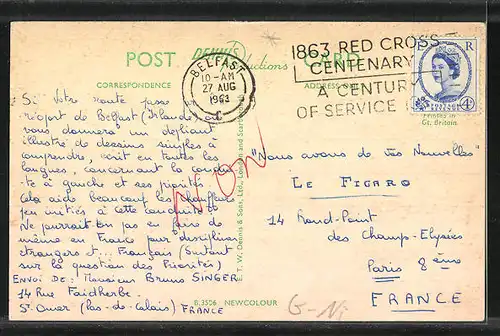 POST CARD
DENNIS
Productions
CORRESPONDENCE
ADDRESS
BELFAST
10-AM
27 AUG
1963
C
1863 RED CROSS
CENTENARY
A CENTURY
OF SERVICE
E R
4D
Printed in
Gt. Britain.
Si Votre route passe
à l'aéroport de Belfast (Irlande) on
vous donnera un dépliant
illustré de dessins simples à
comprendre, écrit en toutes les
langues, concernant la conduite
à gauche et ses priorités.
Cela aide beaucoup les chauffeurs
peu initiés à cette conduite.
Ne pourrait on pas en faire de
même en France pour discipliner
étrangers et... Français (surtout
sur la question des Priorités)
ENVOI DE: Monsieur Bruno SINGER
14 Rue Faidherbe
St Omer (Pas-de-Calais) FRANCE
Non
E. T. W. Dennis & Sons, Ltd., London and Scarborough
"Nous avons de vos Nouvelles"
LE FIGARO
14 Rond-Point
des Champ-Elysées
Paris 8ème
FRANCE
B.3506 NEWCOLOUR
G-Ni